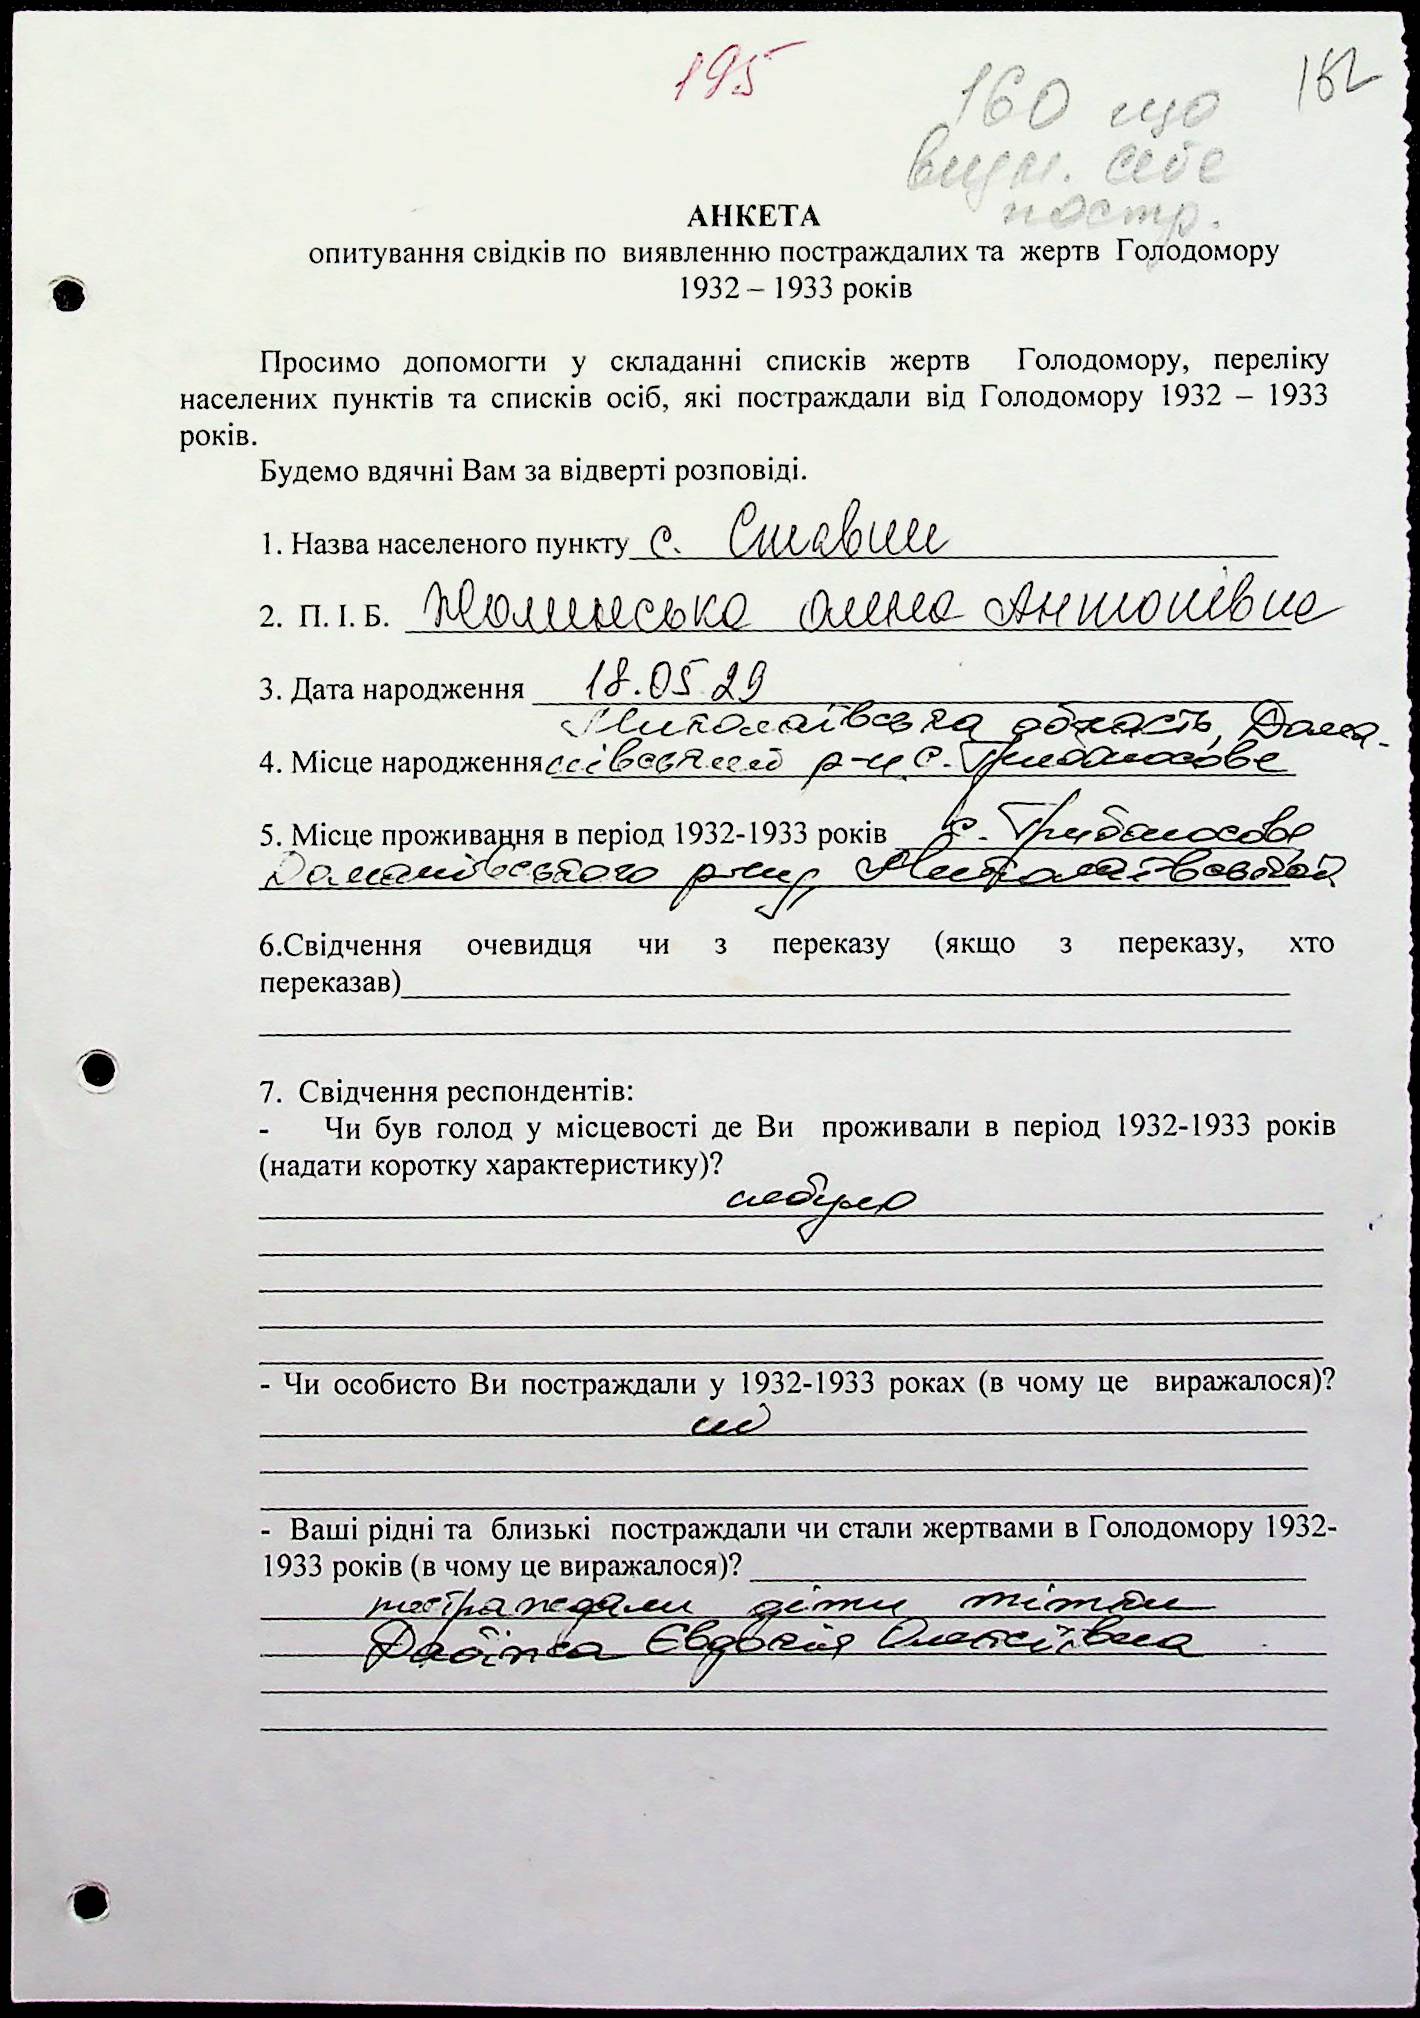 195
182
160 що
визн. себе
постр.
АНКЕТА
опитування свідків по виявленню постраждалих та жертв Голодомору
1932 – 1933 років
Просимо допомогти у складанні списків жертв Голодомору, переліку
населених пунктів та списків осіб, які постраждали від Голодомору 1932 – 1933
років.
Будемо вдячні Вам за відверті розповіді.
1. Назва населеного пункту с. Ставки
2. П. І. Б. Жолинська Олена Антонівна
3. Дата народження 18.05.29
Миколаївська область, Дома-
4. Місце народження нівський р-н, с.
5. Місце проживання в період 1932-1933 років с.
Доманівського р-ну, Миколаївської
6.Свідчення очевидця чи з переказу (якщо з переказу, хто
переказав)
7. Свідчення респондентів:
- Чи був голод у місцевості де Ви проживали в період 1932-1933 років
(надати коротку характеристику)?
небуло
- Чи особисто Ви постраждали у 1932-1933 роках (в чому це виражалося)?
ні
- Ваші рідні та близькі постраждали чи стали жертвами в Голодомору 1932-
1933 років (в чому це виражалося)?
постраждали діти тітки
Євдокія Олексіївна